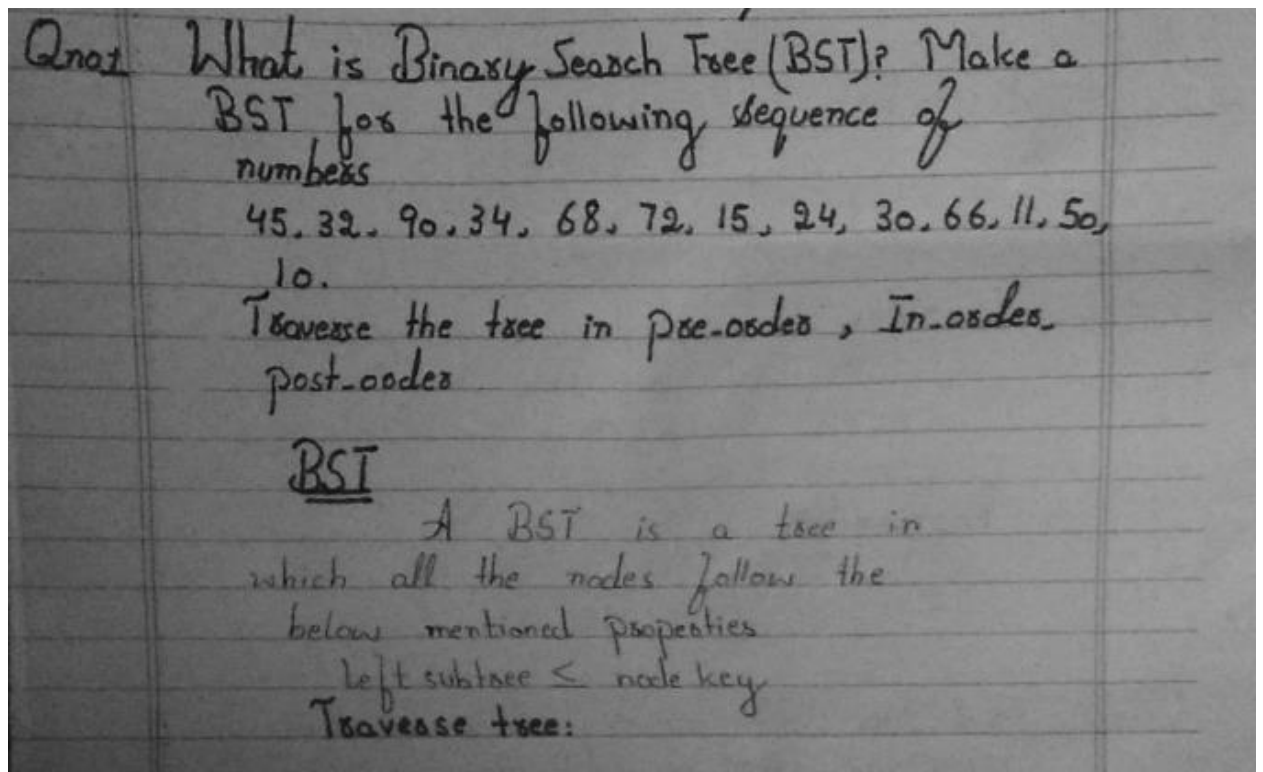 Qno1 What is Binary Search Tree (BST)? Make a
BST for the following sequence of
numbers
45, 32, 90, 34, 68, 72, 15, 24, 30, 66, 11, 50,
10.
Traverse the tree in pre-order, In-order,
post-order
BST
A BST is a tree in
which all the nodes follow the
below mentioned properties
left subtree ≤ node key
Traverse tree: